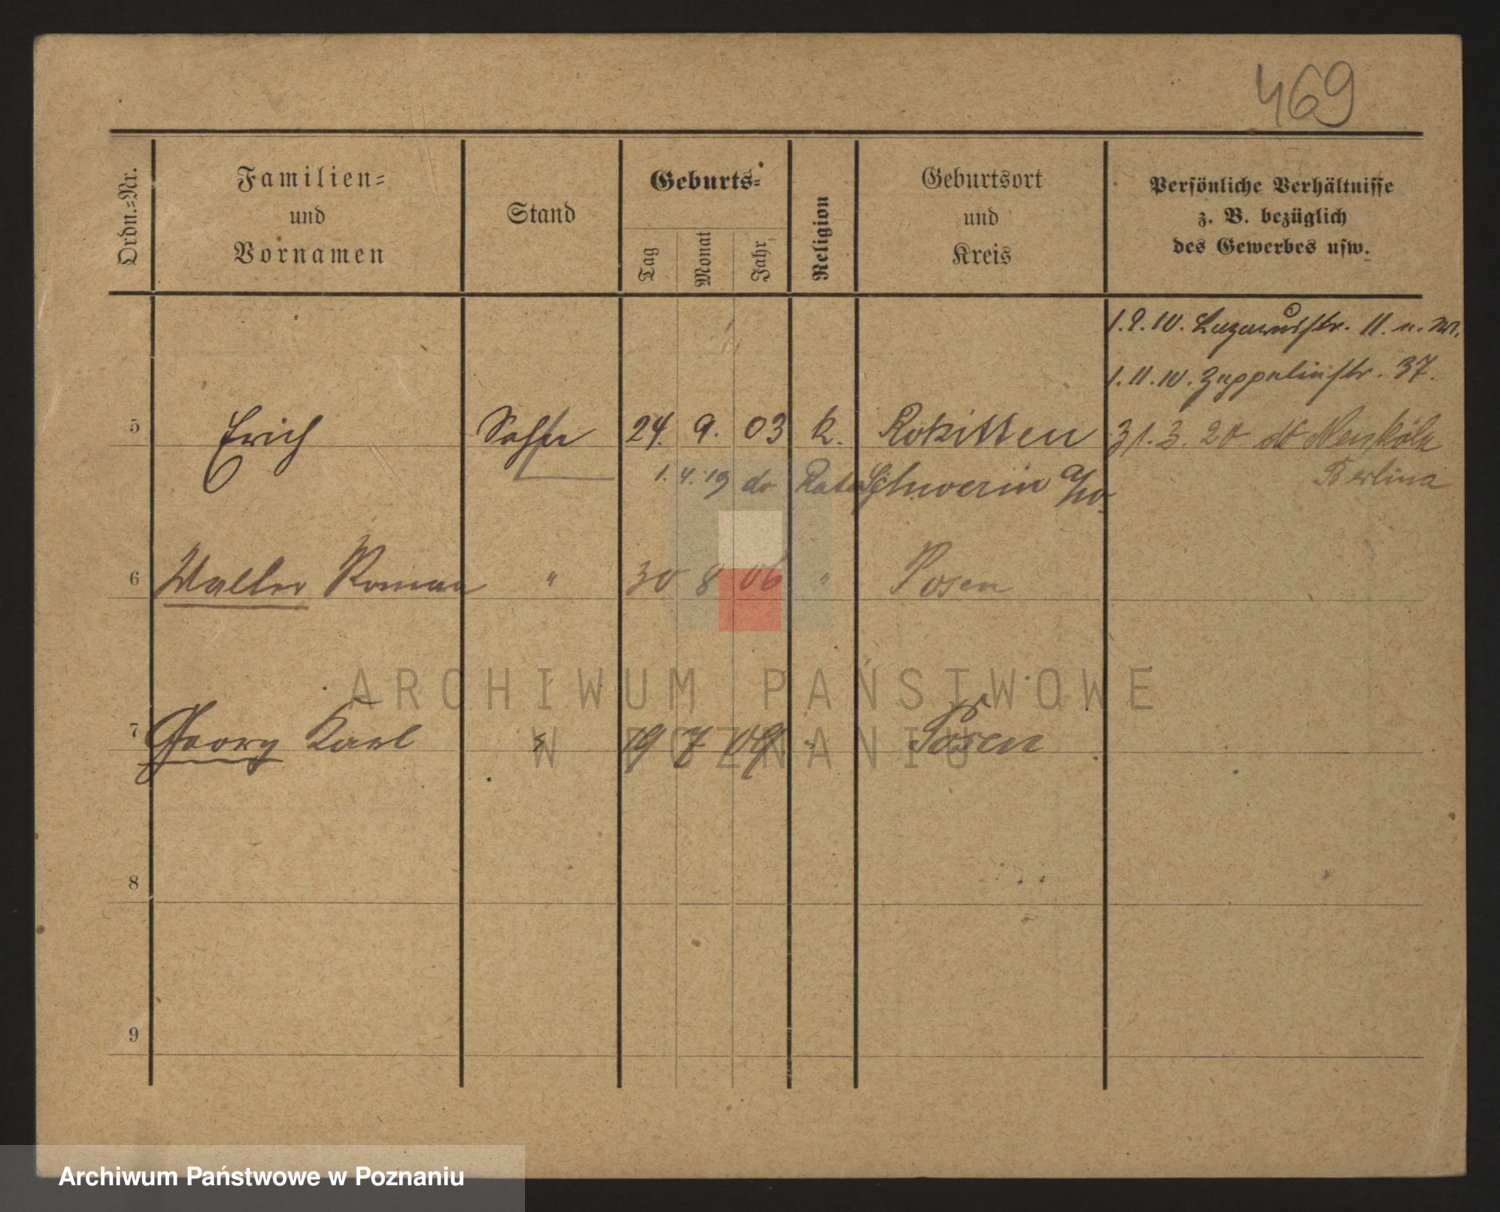 469
Ordn.-Nr.
Familien-
und
Vornamen
Stand
Geburts-
Tag
Monat
Jahr
Religion
Geburtsort
und
Kreis
Persönliche Verhältnisse
z. B. bezüglich
des Gewerbes usw.
1.9.10. Lazarusstr. 11.
1.11.10. Zeppelinstr. 37.
5 Erich Sohn 24. 9. 03 k. Rokitten 31.3.20 Neukölln
1.4.19 do Schwerin a/W. Berlin
6 Walter Roman " 30 8 06 " Posen
7 Georg Karl " 19 7 09 " Posen
8
9
ARCHIWUM PAŃSTWOWE
W POZNANIU
Archiwum Państwowe w Poznaniu